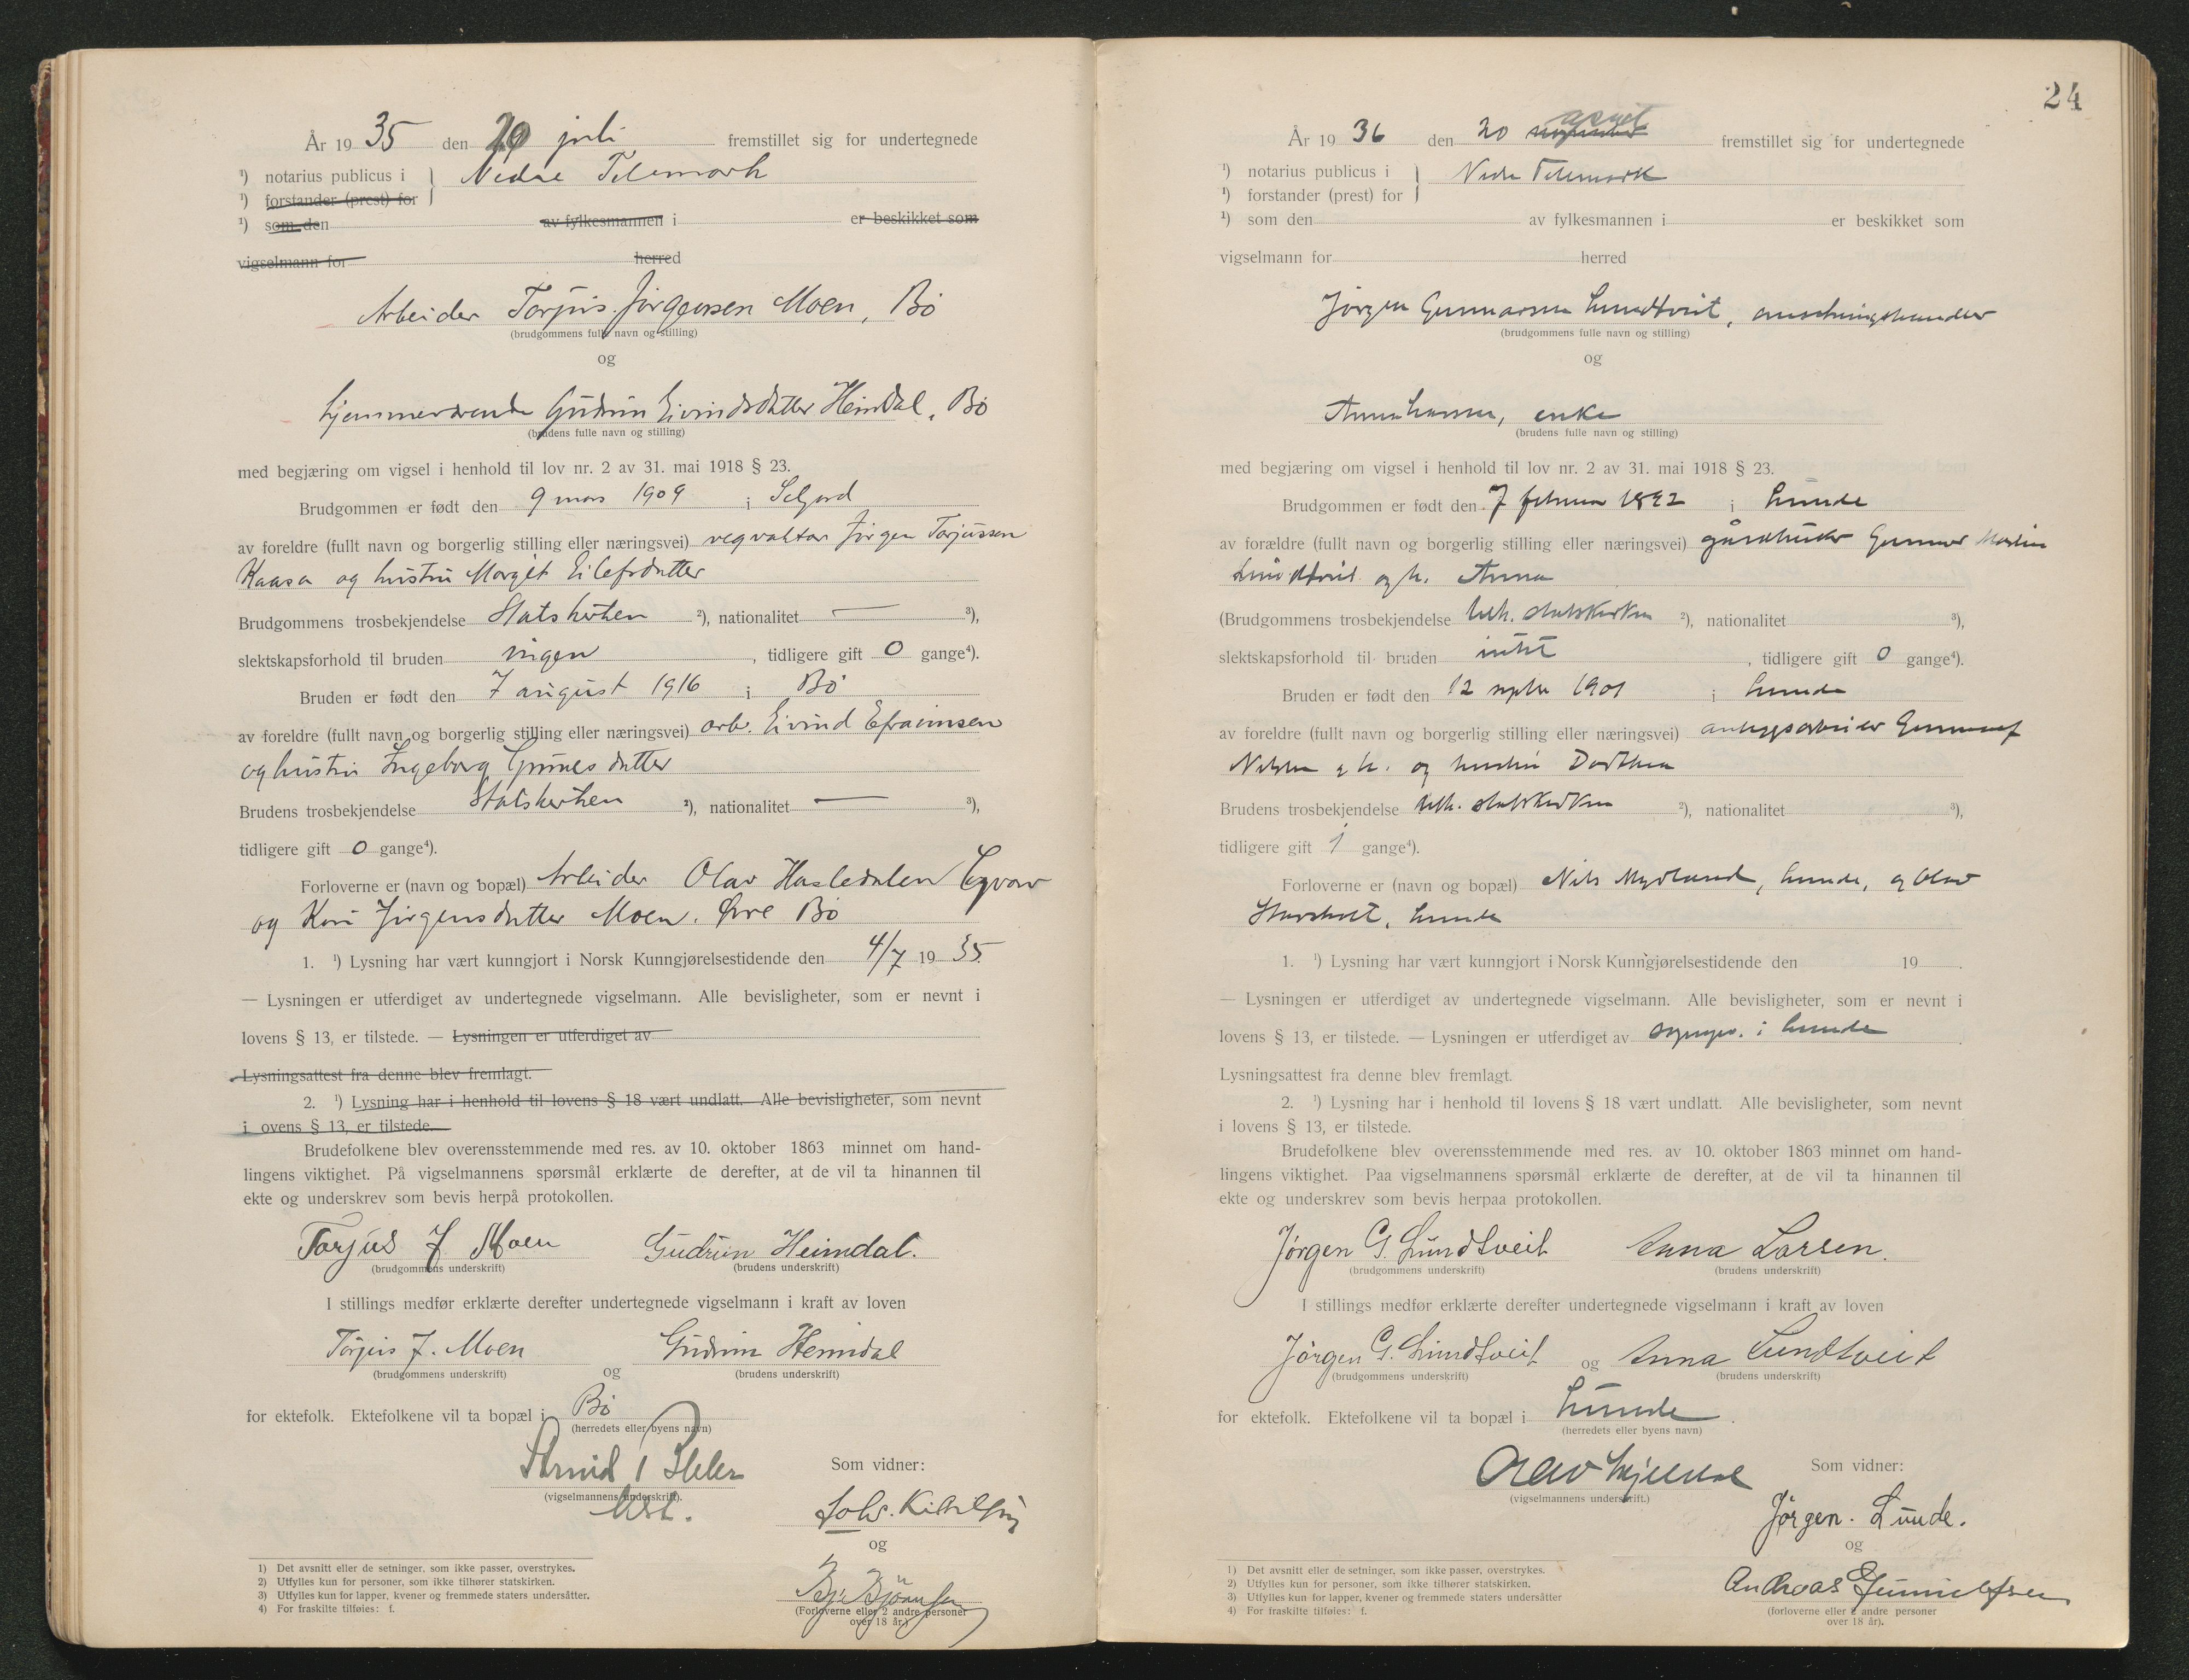 År 1935 den 20 juli fremstillet sig for undertegnede
¹) notarius publicus i } Nedre Telemark
¹) forstander (prest) for
¹) som den av fylkesmannen i er beskikket som
vigselmann for herred
Arbeider Torjus Jørgensen Moen, Bø
(brudgommens fulle navn og stilling)
og
hjemmeværende Gudrun Eivindsdatter Heimdal, Bø
(brudens fulle navn og stilling)
med begjæring om vigsel i henhold til lov nr. 2 av 31. mai 1918 § 23.
Brudgommen er født den 9 mars 1909 i Seljord
av foreldre (fullt navn og borgerlig stilling eller næringsvei) vegvakter Jørgen Torjussen
Kaasa og hustru Margit Eilefsdatter
Brudgommens trosbekjendelse Statskirken ²), nationalitet — ³),
slektskapsforhold til bruden ingen, tidligere gift 0 gange⁴).
Bruden er født den 7 august 1916 i Bø
av foreldre (fullt navn og borgerlig stilling eller næringsvei) arb. Eivind Efraimsen
og hustru Ingeborg datter
Brudens trosbekjendelse Statskirken ²), nationalitet — ³),
tidligere gift 0 gange⁴).
Forloverne er (navn og bopæl) Arbeider Olav Hasledalen
og Kari Jørgensdatter Moen, Bø
1. ¹) Lysning har vært kunngjort i Norsk Kunngjørelsestidende den 4/7 1935
— Lysningen er utferdiget av undertegnede vigselmann. Alle bevisligheter, som er nevnt i
lovens § 13, er tilstede. — Lysningen er utferdiget av
Lysningsattest fra denne blev fremlagt.
2. ¹) Lysning har i henhold til lovens § 18 vært undlatt. Alle bevisligheter, som nevnt
i ovens § 13, er tilstede.
Brudefolkene blev overensstemmende med res. av 10. oktober 1863 minnet om hand-
lingens viktighet. På vigselmannens spørsmål erklærte de derefter, at de vil ta hinannen til
ekte og underskrev som bevis herpå protokollen.
Torjus J Moen Gudrun Heimdal.
(brudgommens underskrift) (brudens underskrift)
I stillings medfør erklærte derefter undertegnede vigselmann i kraft av loven
Torjus J. Moen og Gudrun Heimdal
(brudgommens underskrift) (brudens underskrift)
for ektefolk. Ektefolkene vil ta bopæl i Bø
(herredets eller byens navn)
Som vidner:
(vigselmannens underskrift).
og
(Forloverne eller 2 andre personer
over 18 år.)
1) Det avsnitt eller de setninger, som ikke passer, overstrykes.
2) Utfylles kun for personer, som ikke tilhører statskirken.
3) Utfylles kun for lapper, kvener og fremmede staters undersåtter.
4) For fraskilte tilføies: f.
24
År 1936 den 20 august fremstillet sig for undertegnede
¹) notarius publicus i } Nedre Telemark
¹) forstander (prest) for
¹) som den av fylkesmannen i er beskikket som
vigselmann for herred
Jørgen Gunnarsen Lundtveit,
(brudgommens fulle navn og stilling)
og
Anna Larsen, enke
(brudens fulle navn og stilling)
med begjæring om vigsel i henhold til lov nr. 2 av 31. mai 1918 § 23.
Brudgommen er født den 7 februar 1892 i Lunde
av forældre (fullt navn og borgerlig stilling eller næringsvei) gårdbruker Gunnar
Lundtveit og h. Anna
(Brudgommens trosbekjendelse statskirken ²), nationalitet ³),
slektskapsforhold til bruden intet, tidligere gift 0 gange⁴).
Bruden er født den 12 septbr 1901 i Lunde
av foreldre (fullt navn og borgerlig stilling eller næringsvei) anleggsarbeider
Nilsen og h. og hustru Dorthea
Brudens trosbekjendelse statskirken ²), nationalitet ³),
tidligere gift 1 gange⁴).
Forloverne er (navn og bopæl) Nils Mydland, Lunde, og Olav
Lunde
1. ¹) Lysning har vært kunngjort i Norsk Kunngjørelsestidende den 19 .
— Lysningen er utferdiget av undertegnede vigselmann. Alle bevisligheter, som er nevnt i
lovens § 13, er tilstede. — Lysningen er utferdiget av sognepr. i Lunde
Lysningsattest fra denne blev fremlagt.
2. ¹) Lysning har i henhold til lovens § 18 vært undlatt. Alle bevisligheter, som nevnt
i lovens § 13, er tilstede.
Brudefolkene blev overensstemmende med res. av 10. oktober 1863 minnet om hand-
lingens viktighet. Paa vigselmannens spørsmål erklærte de derefter, at de vil ta hinannen til
ekte og underskrev som bevis herpaa protokollen.
Jørgen G. Lundtveit Anna Larsen.
(brudgommens underskrift) (brudens underskrift)
I stillings medfør erklærte derefter undertegnede vigselmann i kraft av loven
Jørgen G. Lundtveit og Anna Lundtveit
(brudgommens underskrift) (brudens underskrift)
for ektefolk. Ektefolkene vil ta bopæl i Lunde.
(herredets eller byens navn)
Olav Som vidner:
(vigselmannens underskrift.)
Jørgen. Lunde.
og
Andreas Gunnulfsen
(forloverne eller 2 andre personer
over 18 år).
1) Det avsnitt eller de setninger, som ikke passer, overstrykes.
2) Utfylles kun for personer, som ikke tilhører statskirken.
3) Utfylles kun for lapper, kvener og fremmede staters undersåtter
4) For fraskilte tilføies: f.